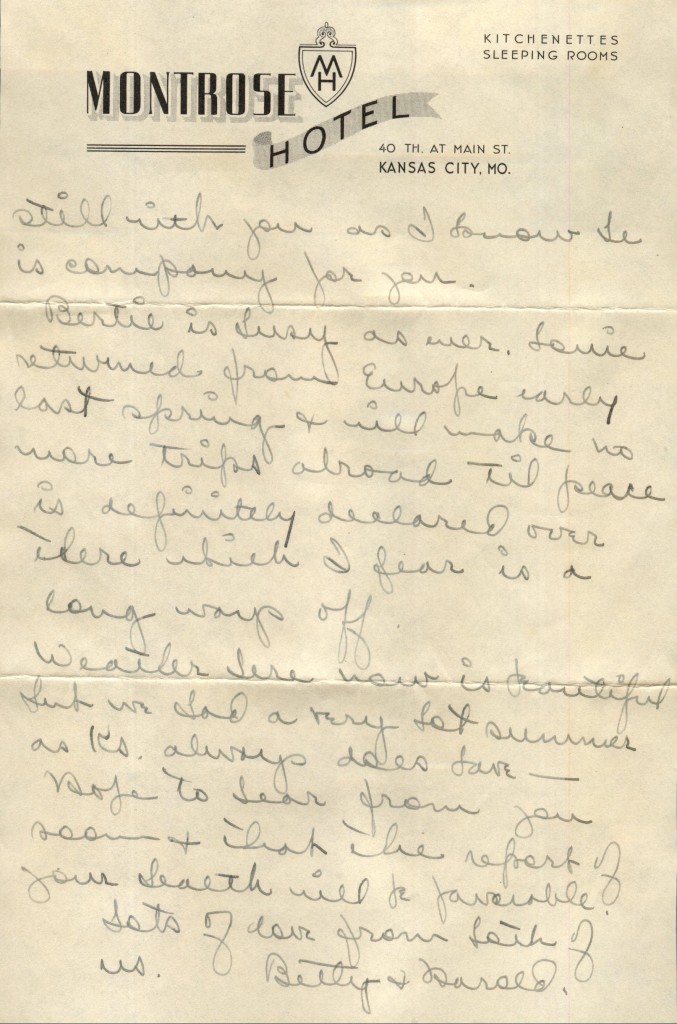 KITCHENETTES
SLEEPING ROOMS
MH
MONTROSE
HOTEL
40 TH. AT MAIN ST.
KANSAS CITY, MO.
still with you as I know he
is company for you.
Bertie is busy as ever. Louie
returned from Europe early
last spring & will make no
more trips abroad til peace
is definitely declared over
there which I fear is a
long ways off
Weather here now is beautiful
but we had a very hot summer
as Ks. always does have —
Hope to hear from you
soon & that the report of
your health will be favorable.
Lots of love from both of
us. Betty & Harold.